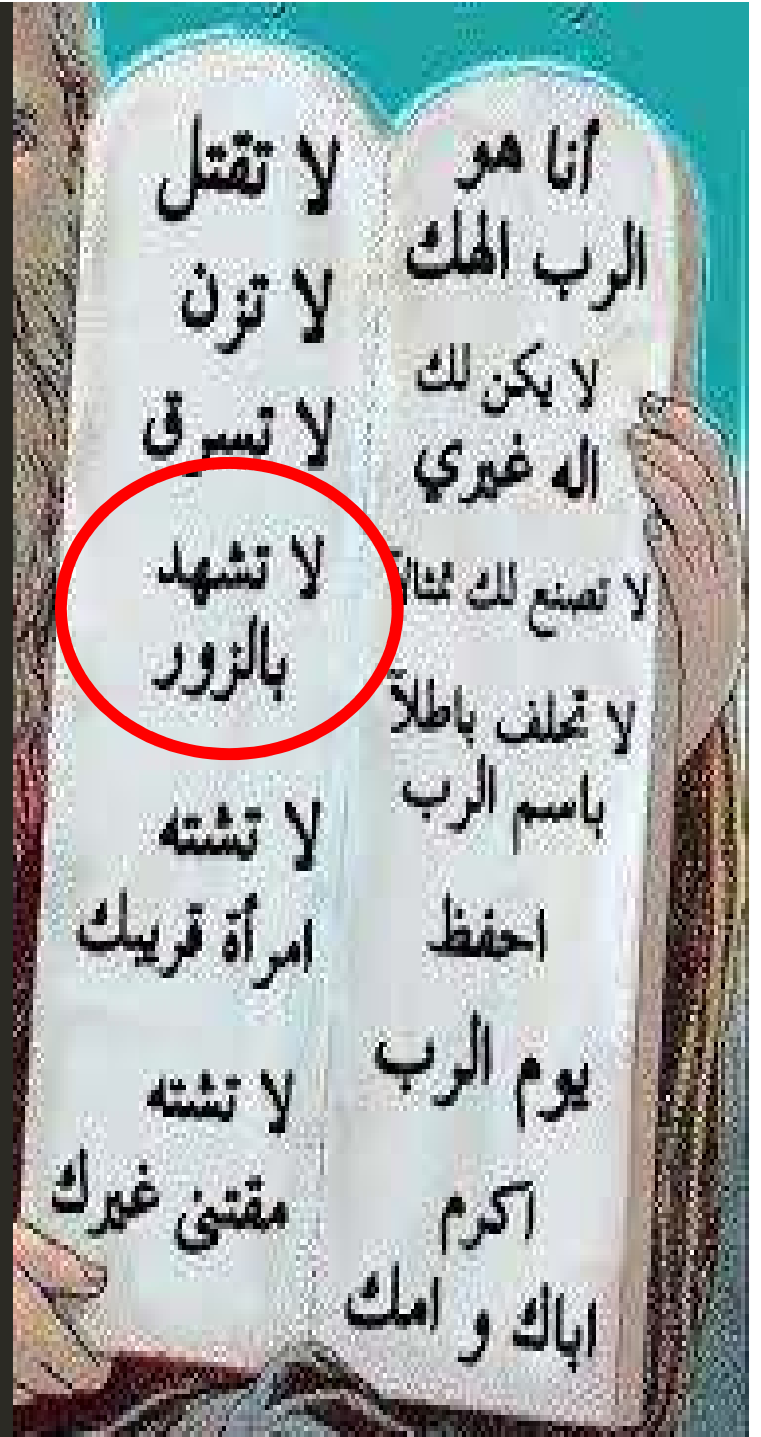 أنا هو
الرب الهك
لا يكن لك
اله غيري
لا تصنع لك تمثالا
لا تحلف باطلاً
باسم الرب
احفظ
يوم الرب
اكرم
اباك و امك
لا تقتل
لا تزن
لا تسرق
لا تشهد
بالزور
لا تشته
امرأة قريبك
لا تشته
مقتنى غيرك